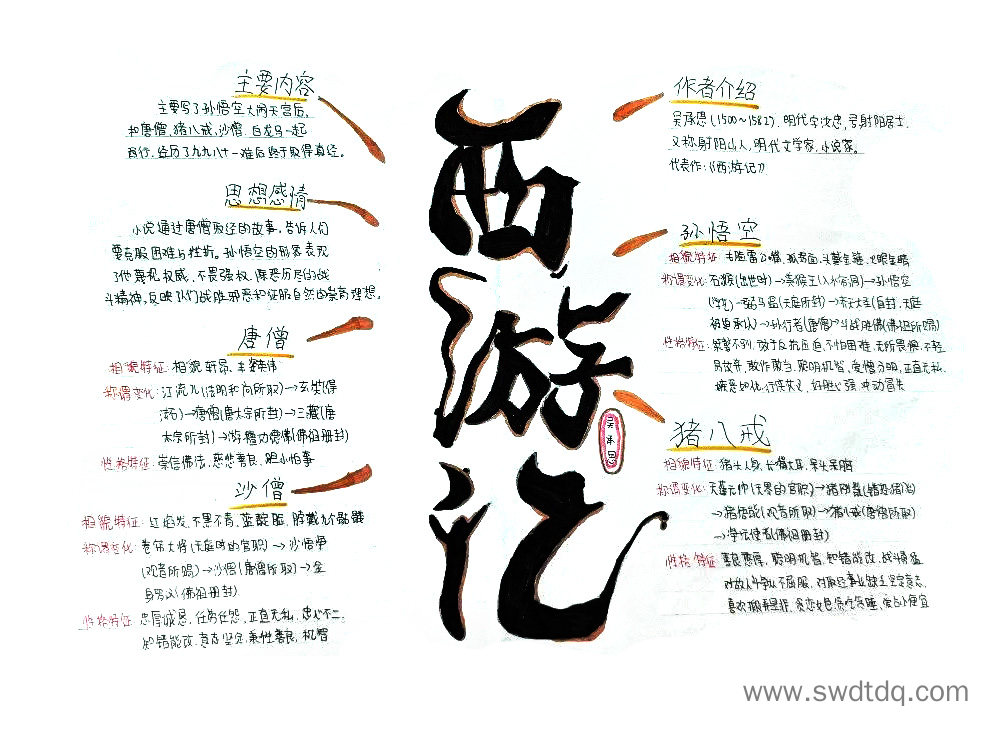 西游记
吴承恩
主要内容
主要写了孙悟空大闹天宫后，
和唐僧、猪八戒、沙僧、白龙马一起
西行，经历了九九八十一难后终于取得真经。
思想感情
小说通过唐僧取经的故事，告诉人们
要克服困难与挫折。孙悟空的形象表现
了他蔑视权威，不畏强权，降恶历尽的战
斗精神，反映了人们战胜邪恶和征服自然的崇高理想。
唐僧
相貌特征：相貌轩昂、丰姿英伟
称谓变化：江流儿（法明和尚所取）→玄奘（得
→唐僧（唐太宗所封）→三藏（唐
太宗所封）→旃檀功德佛（佛祖册封）
性格特征：崇信佛法，慈悲善良，胆小怕事
沙僧
相貌特征：红焰发，不黑不青，蓝靛脸，脖戴九个骷髅
称谓变化：卷帘大将（天庭时的官职）→沙悟净
（观音所赐）→沙僧（唐僧所取）→金
身罗汉（佛祖册封）
性格特征：忠厚诚恳，任劳任怨，正直无私，忠心不二，
知错能改，意志坚定，秉性善良，机智
作者介绍
吴承恩（1500~1582），明代字汝忠，号射阳居士，
又称射阳山人，明代文学家，小说家。
代表作：《西游记》
孙悟空
相貌特征：毛脸雷公嘴，孤拐面，头戴金箍，火眼金睛
称谓变化：石猴（出世时）→美猴王（入水帘洞）→孙悟空
→弼马温（天庭所封）→齐天大圣（自封，天庭
承认）→孙行者（唐僧）→斗战胜佛（佛祖所赐）
性格特征：桀骜不驯，敢于反抗压迫，不怕困难，无所畏惧，不轻
易放弃，敢作敢当，聪明机智，爱憎分明，正直无私，
嫉恶如仇，行侠仗义，好胜心强，冲动冒失
猪八戒
相貌特征：猪头人身，长嘴大耳，呆头呆脑
称谓变化：天蓬元帅（天界的官职）→猪刚鬣（错投猪胎）
→猪悟能（观音所取）→猪八戒（唐僧所取）
→净坛使者（佛祖册封）
性格特征：善良憨厚，聪明机智，知错能改，战斗勇猛
对敌人斗争从不屈服，对取经事业缺乏坚定意志，
喜欢搬弄是非，贪恋女色，贪吃贪睡，爱占小便宜
www.swdtdq.com